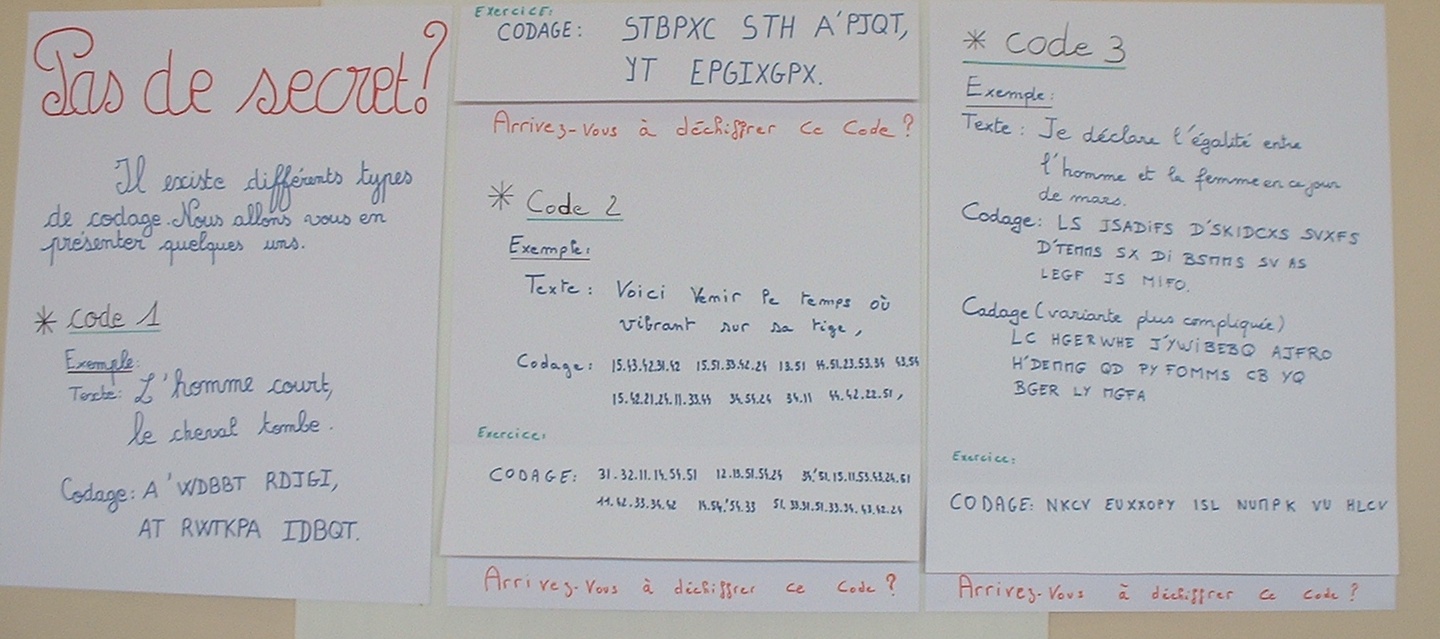 Pas de secret?
Il existe différents types
de codage. Nous allons vous en
présenter quelques uns.
* Code 1
Exemple:
Texte: L'homme court,
le cheval tombe.
Codage: A'WDBBT RDJGI,
AT RWTKPA IDBQT.
Exercice:
CODAGE: STBPXC STH A'PJQT,
YT EPGIXGPX.
Arrivez-vous à déchiffrer ce code?
* Code 2
Exemple:
Texte: Voici venir le temps où
vibrant sur sa tige,
Codage: 15.43.42.31.42 15.51.33.42.24 13.51 44.51.23.53.34 43.54
15.42.21.24.11.33.44 34.54.24 34.11 44.42.22.51,
Exercice:
CODAGE: 31.32.11.14.54.51 12.13.51.54.24
Arrivez-vous à déchiffrer ce code?
* Code 3
Exemple:
Texte: Je déclare l'égalité entre
l'homme et la femme en ce jour
de mars.
Codage: LS JSADIFS D'SKIDCXS SVXFS
D'TEMMS SX DI BSMMS SV AS
LEGF JS MIFO.
Cadage (variante plus compliquée)
LC HGERWHE J'YWIBEBQ AJFRO
H'DEMMG QD PY FOMMS CB YQ
BGER LY MGFA
Exercice:
CODAGE: NKCV EUXXOPY ISL NUMPK VU HLCV
Arrivez-vous à déchiffrer ce code?